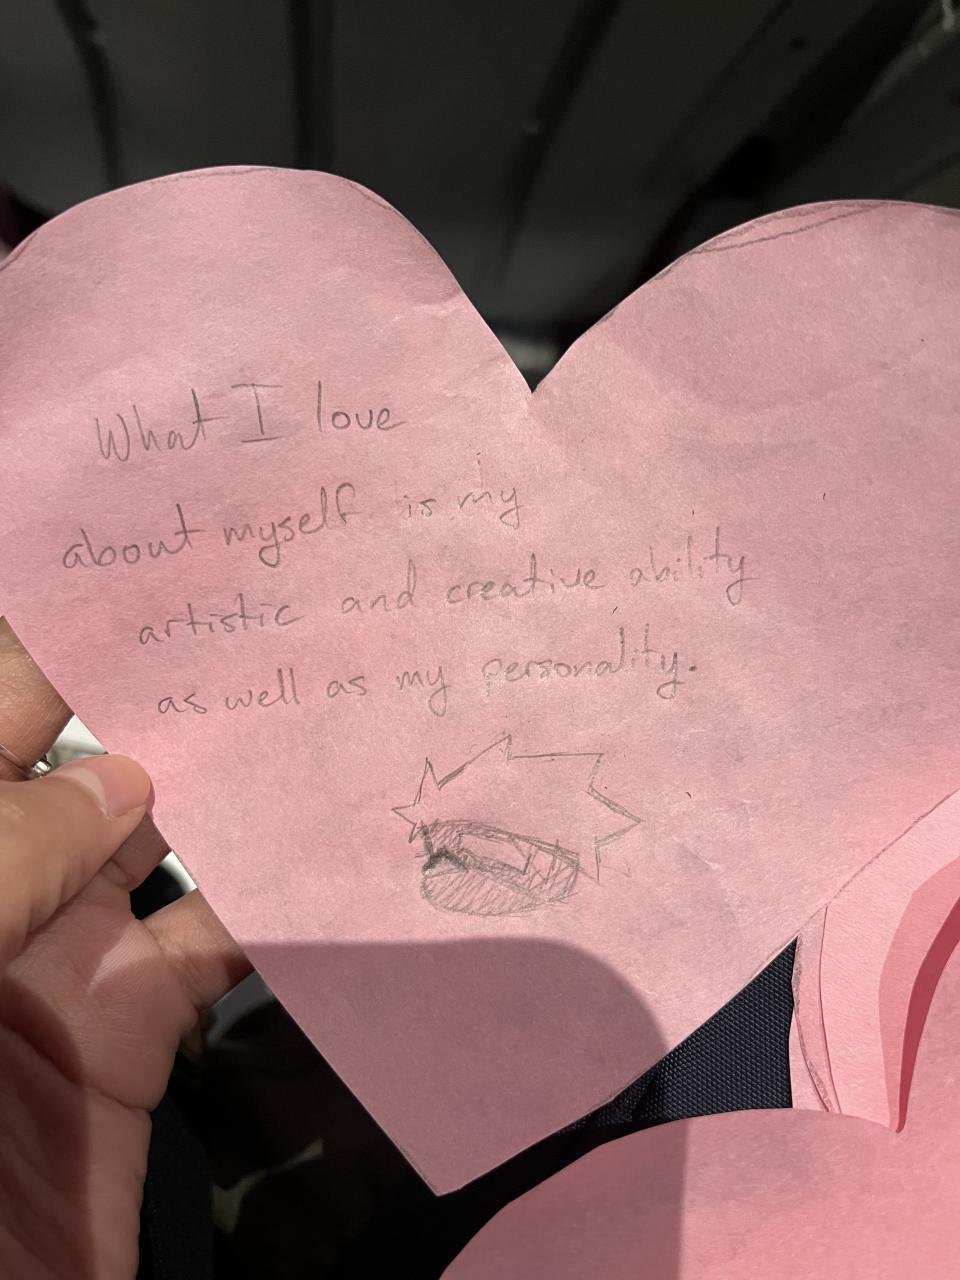 What I love
about myself is my
artistic and creative ability
as well as my personality.